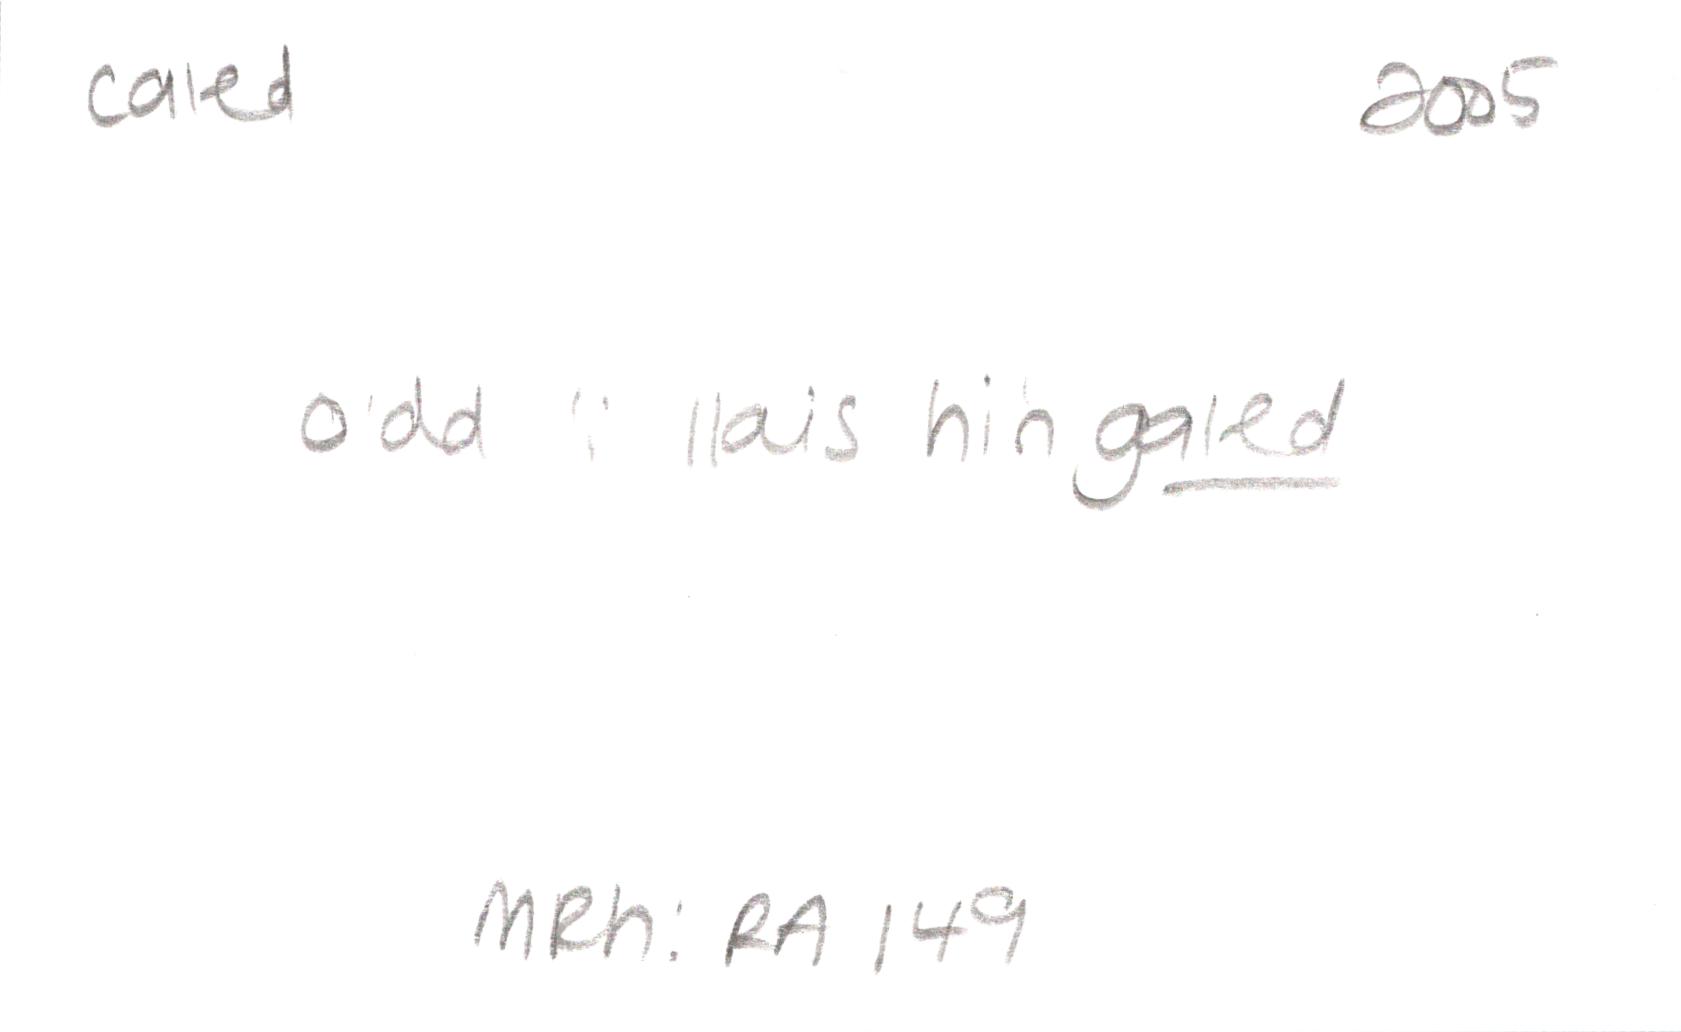 caled 2005
o'dd 'i llais hi'n galed
MRh: RA 149